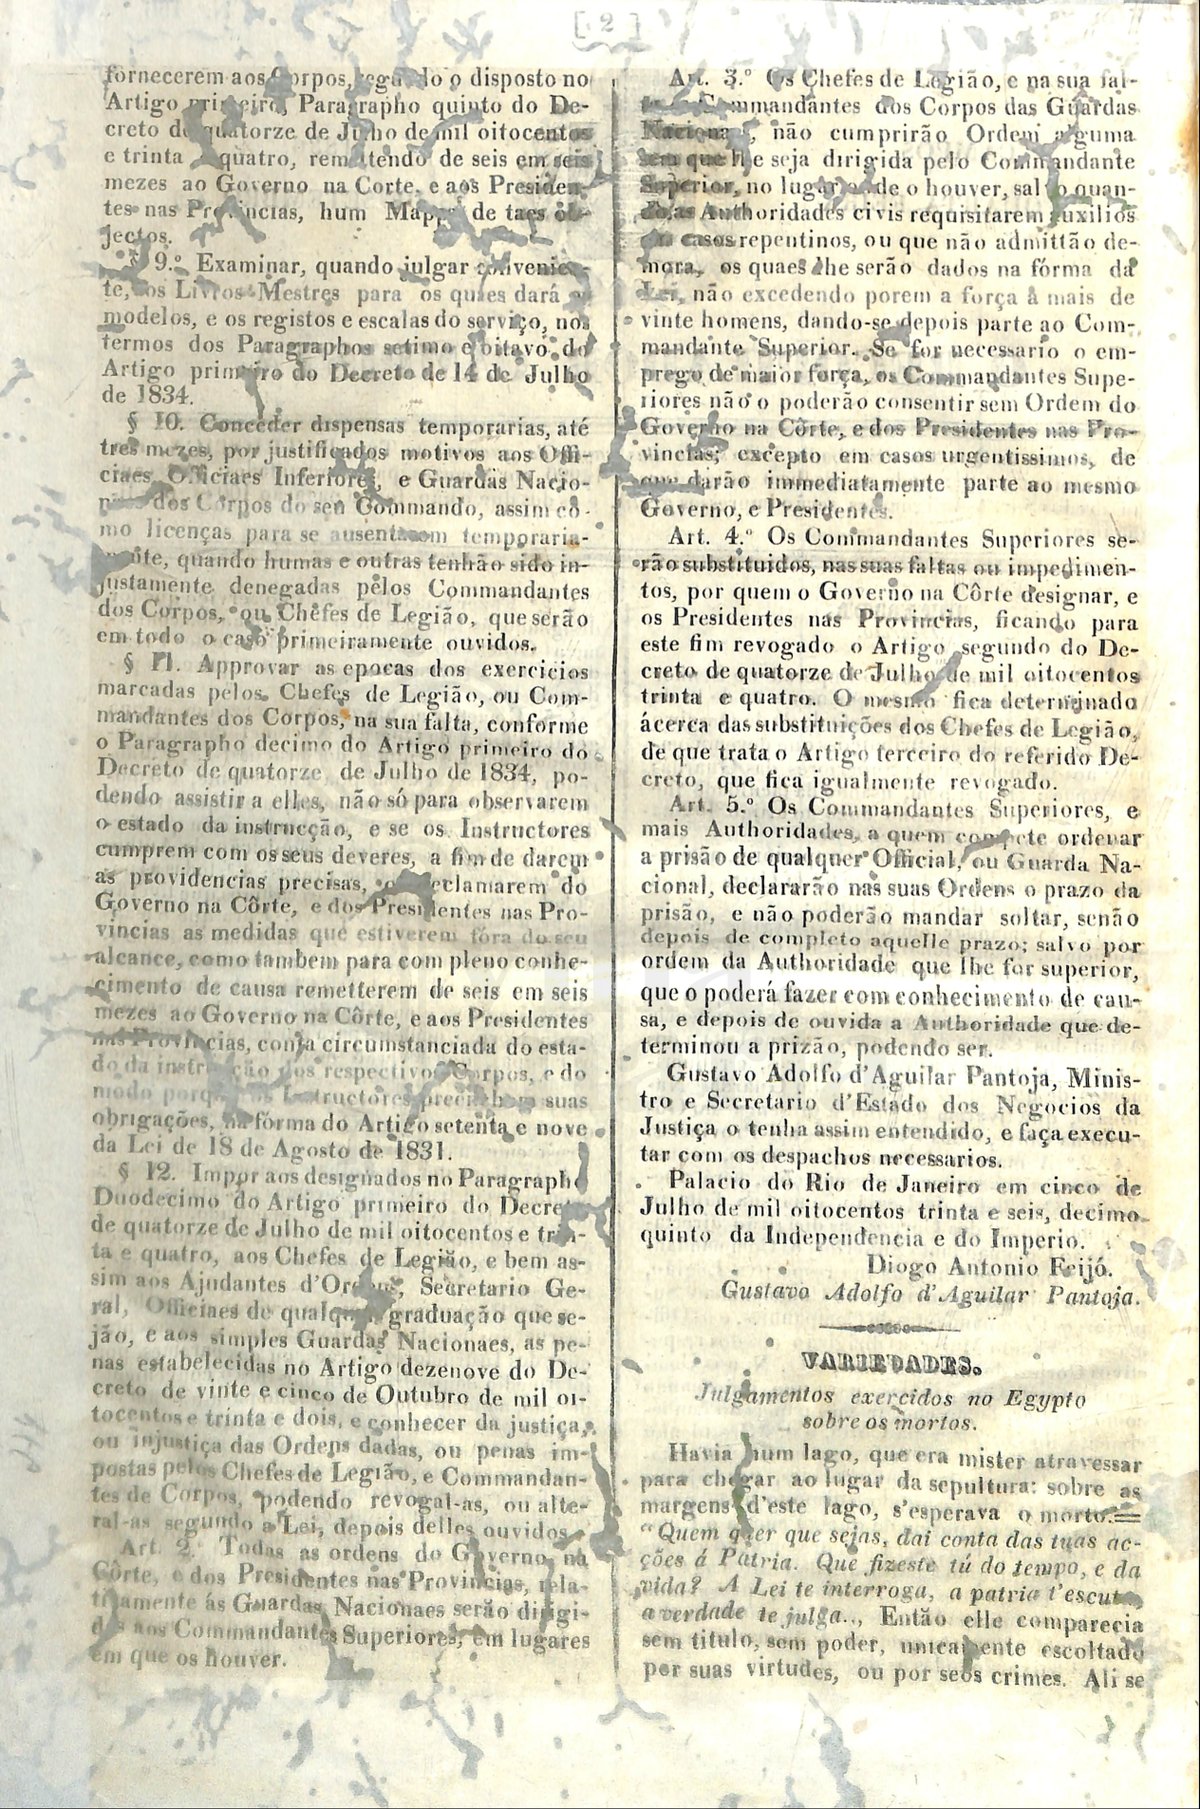 [ 2 ]
fornecerem aos Corpos, segundo o disposto no
Artigo primeiro, Paragrapho quinto do De-
creto de quatorze de Julho de mil oitocentos
e trinta e quatro, remettendo de seis em seis
mezes ao Governo na Corte, e aos Presiden-
tes nas Provincias, hum Mappa de taes ob-
jectos.
§ 9.º Examinar, quando julgar convenien-
te, os Livros Mestres para os quaes dará
modelos, e os registos e escalas do serviço, nos
termos dos Paragraphos setimo e oitavo do
Artigo primeiro do Decreto de 14 de Julho
de 1834.
§ 10. Conceder dispensas temporarias, até
tres mezes, por justificados motivos aos Offi-
ciaes, Officiaes Inferiores, e Guardas Nacio-
naes dos Corpos do seu Commando, assim co-
mo licenças para se ausentarem temporaria-
mente, quando humas e outras tenhão sido in-
justamente denegadas pelos Commandantes
dos Corpos, ou Chefes de Legião, que serão
em todo o caso primeiramente ouvidos.
§ 11. Approvar as epocas dos exercicios
marcadas pelos Chefes de Legião, ou Com-
mandantes dos Corpos, na sua falta, conforme
o Paragrapho decimo do Artigo primeiro do
Decreto de quatorze de Julho de 1834, po-
dendo assistir a elles, não só para observarem
o estado da instrucção, e se os Instructores
cumprem com os seus deveres, a fim de darem
as providencias precisas, ou reclamarem do
Governo na Côrte, e dos Presidentes nas Pro-
vincias as medidas que estiverem fóra do seu
alcance, como tambem para com pleno conhe-
cimento de causa remetterem de seis em seis
mezes ao Governo na Côrte, e aos Presidentes
nas Provincias, conta circumstanciada do esta-
do da instrucção dos respectivos Corpos, e do
modo porque os Instructores preenchem suas
obrigações, na fórma do Artigo setenta e nove
da Lei de 18 de Agosto de 1831.
§ 12. Impor aos designados no Paragrapho
Duodecimo do Artigo primeiro do Decreto
de quatorze de Julho de mil oitocentos e trin-
ta e quatro, aos Chefes de Legião, e bem as-
sim aos Ajudantes d'Ordens, Secretario Ge-
ral, Officiaes de qualquer graduação que se-
jão, e aos simples Guardas Nacionaes, as pe-
nas estabelecidas no Artigo dezenove do De-
creto de vinte e cinco de Outubro de mil oi-
tocentos e trinta e dois, e conhecer da justiça,
ou injustiça das Ordens dadas, ou penas im-
postas pelos Chefes de Legião, e Commandan-
tes de Corpos, podendo revogal-as, ou alte-
ral-as segundo a Lei, depois delles ouvidos.
Art. 2.º Todas as ordens do Governo na
Côrte, e dos Presidentes nas Provincias, rela-
tivamente ás Guardas Nacionaes serão dirigi-
das aos Commandantes Superiores, em lugares
em que os houver.
Art. 3.º Os Chefes de Legião, e na sua fal-
ta os Commandantes dos Corpos das Guardas
Nacionaes, não cumprirão Ordem alguma
sem que lhe seja dirigida pelo Commandante
Superior, no lugar onde o houver, salvo quan-
do as Authoridades civis requisitarem auxilios
em casos repentinos, ou que não admittão de-
mora, os quaes lhe serão dados na fórma da
Lei, não excedendo porem a força á mais de
vinte homens, dando-se depois parte ao Com-
mandante Superior. Se for necessario o em-
prego de maior força, os Commandantes Supe-
riores não o poderão consentir sem Ordem do
Governo na Côrte, e dos Presidentes nas Pro-
vincias; excepto em casos urgentissimos, de
que darão immediatamente parte ao mesmo
Governo, e Presidentes.
Art. 4.º Os Commandantes Superiores se-
rão substituidos, nas suas faltas ou impedimen-
tos, por quem o Governo na Côrte designar, e
os Presidentes nas Provincias, ficando para
este fim revogado o Artigo segundo do De-
creto de quatorze de Julho de mil oitocentos
trinta e quatro. O mesmo fica determinado
ácerca das substituições dos Chefes de Legião,
de que trata o Artigo terceiro do referido De-
creto, que fica igualmente revogado.
Art. 5.º Os Commandantes Superiores, e
mais Authoridades, a quem compete ordenar
a prisão de qualquer Official, ou Guarda Na-
cional, declararão nas suas Ordens o prazo da
prisão, e não poderão mandar soltar, senão
depois de completo aquelle prazo; salvo por
ordem da Authoridade que lhe for superior,
que o poderá fazer com conhecimento de cau-
sa, e depois de ouvida a Authoridade que de-
terminou a prizão, podendo ser.
Gustavo Adolfo d'Aguilar Pantoja, Minis-
tro e Secretario d'Estado dos Negocios da
Justiça o tenha assim entendido, e faça execu-
tar com os despachos necessarios.
Palacio do Rio de Janeiro em cinco de
Julho de mil oitocentos trinta e seis, decimo
quinto da Independencia e do Imperio.
Diogo Antonio Feijó.
Gustavo Adolfo d'Aguilar Pantoja.
VARIEDADES.
Julgamentos exercidos no Egypto
sobre os mortos.
Havia hum lago, que era mister atravessar
para chegar ao lugar da sepultura: sobre as
margens d'este lago, s'esperava o morto.=
"Quem quer que sejas, dai conta das tuas ac-
ções á Patria. Que fizeste tú do tempo, e da
vida? A Lei te interroga, a patria t'escuta,
a verdade te julga.,, Então elle comparecia
sem titulo, sem poder, unicamente escoltado
por suas virtudes, ou por seos crimes. Ali se